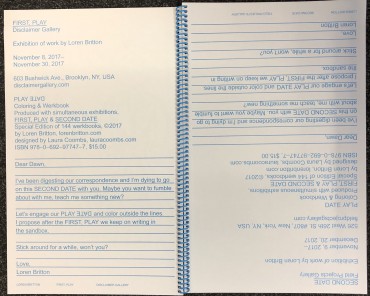 FIRST, PLAY
Disclaimer Gallery
Exhibition of work by Loren Britton
November 8, 2017–
November 30, 2017
600 Bushwick Ave., Brooklyn, NY, USA
disclaimergallery.com
PLAY
Coloring & Workbook
Produced with simultaneous exhibitions,
FIRST, PLAY & SECOND DATE
Special Edition of 144 workbooks, ©2017
by Loren Britton, lorenbritton.com
designed by Laura Coombs, lauracoombs.com
ISBN 978-0-692-97747-7, $15.00
Dear Dawn,
I've been digesting our correspondence and I'm dying to go
on this SECOND DATE with you. Maybe you want to fumble
about with me, teach me something new?
Let's engage our PLAY and color outside the lines.
I propose after the FIRST PLAY we keep on writing in
the sandbox.
Stick around for a while, won't you?
Love,
Loren Britton
SECOND DATE
Field Projects Gallery
Exhibition of work by Loren Britton
November 9, 2017–
December 2017
526 West 26 St, #807, New York, NY, USA
fieldprojectsgallery.com
PLAY
Coloring & Workbook
Produced with simultaneous exhibitions
FIRST PLAY & SECOND DATE
Special Edition of 144 workbooks, ©2017
by Loren Britton, lorenbritton.com
designed by Laura Coombs, lauracoombs.com
ISBN 978-0-692-97747-7, $15.00
Dear Dawn,
I've been digesting our correspondence and I'm dying to go
on this SECOND DATE with you. Maybe you want to fumble
about with me, teach me something new?
Let's engage our PLAY and color outside the lines.
I propose after the FIRST PLAY we keep on writing in
the sandbox.
Stick around for a while, won't you?
Love,
Loren Britton